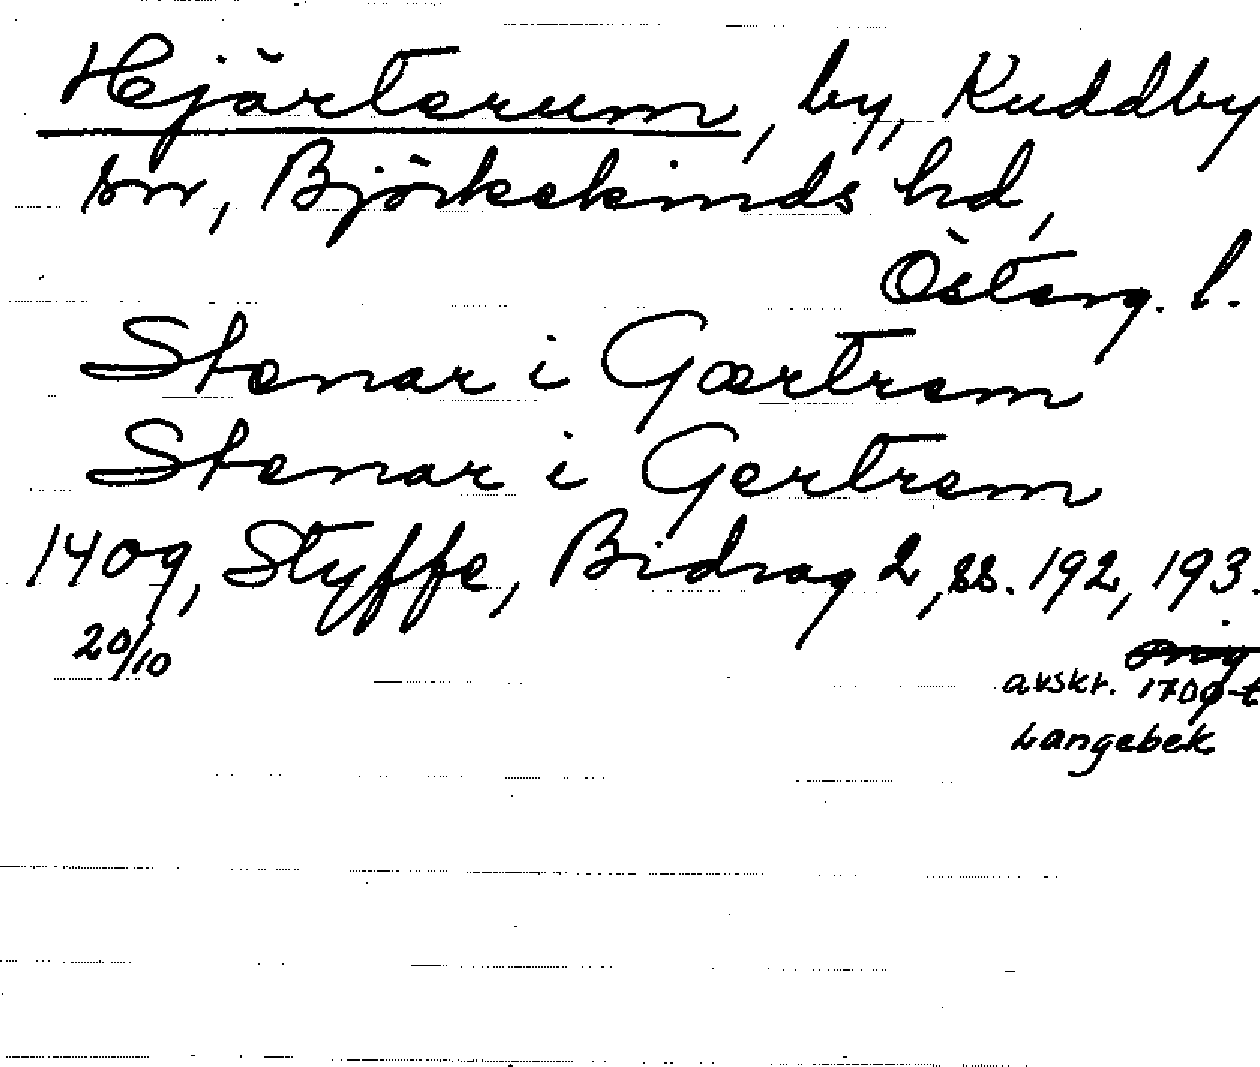 Hjärterum, by, Kuddby
sn, Björkekinds hd,
Österg. l.
Stenar i Gærtrem
Stenar i Gertrem
1409, Styffe, Bidrag 2, ss. 192, 193.
20/10
orig
avskr. 1700-t
Langebek